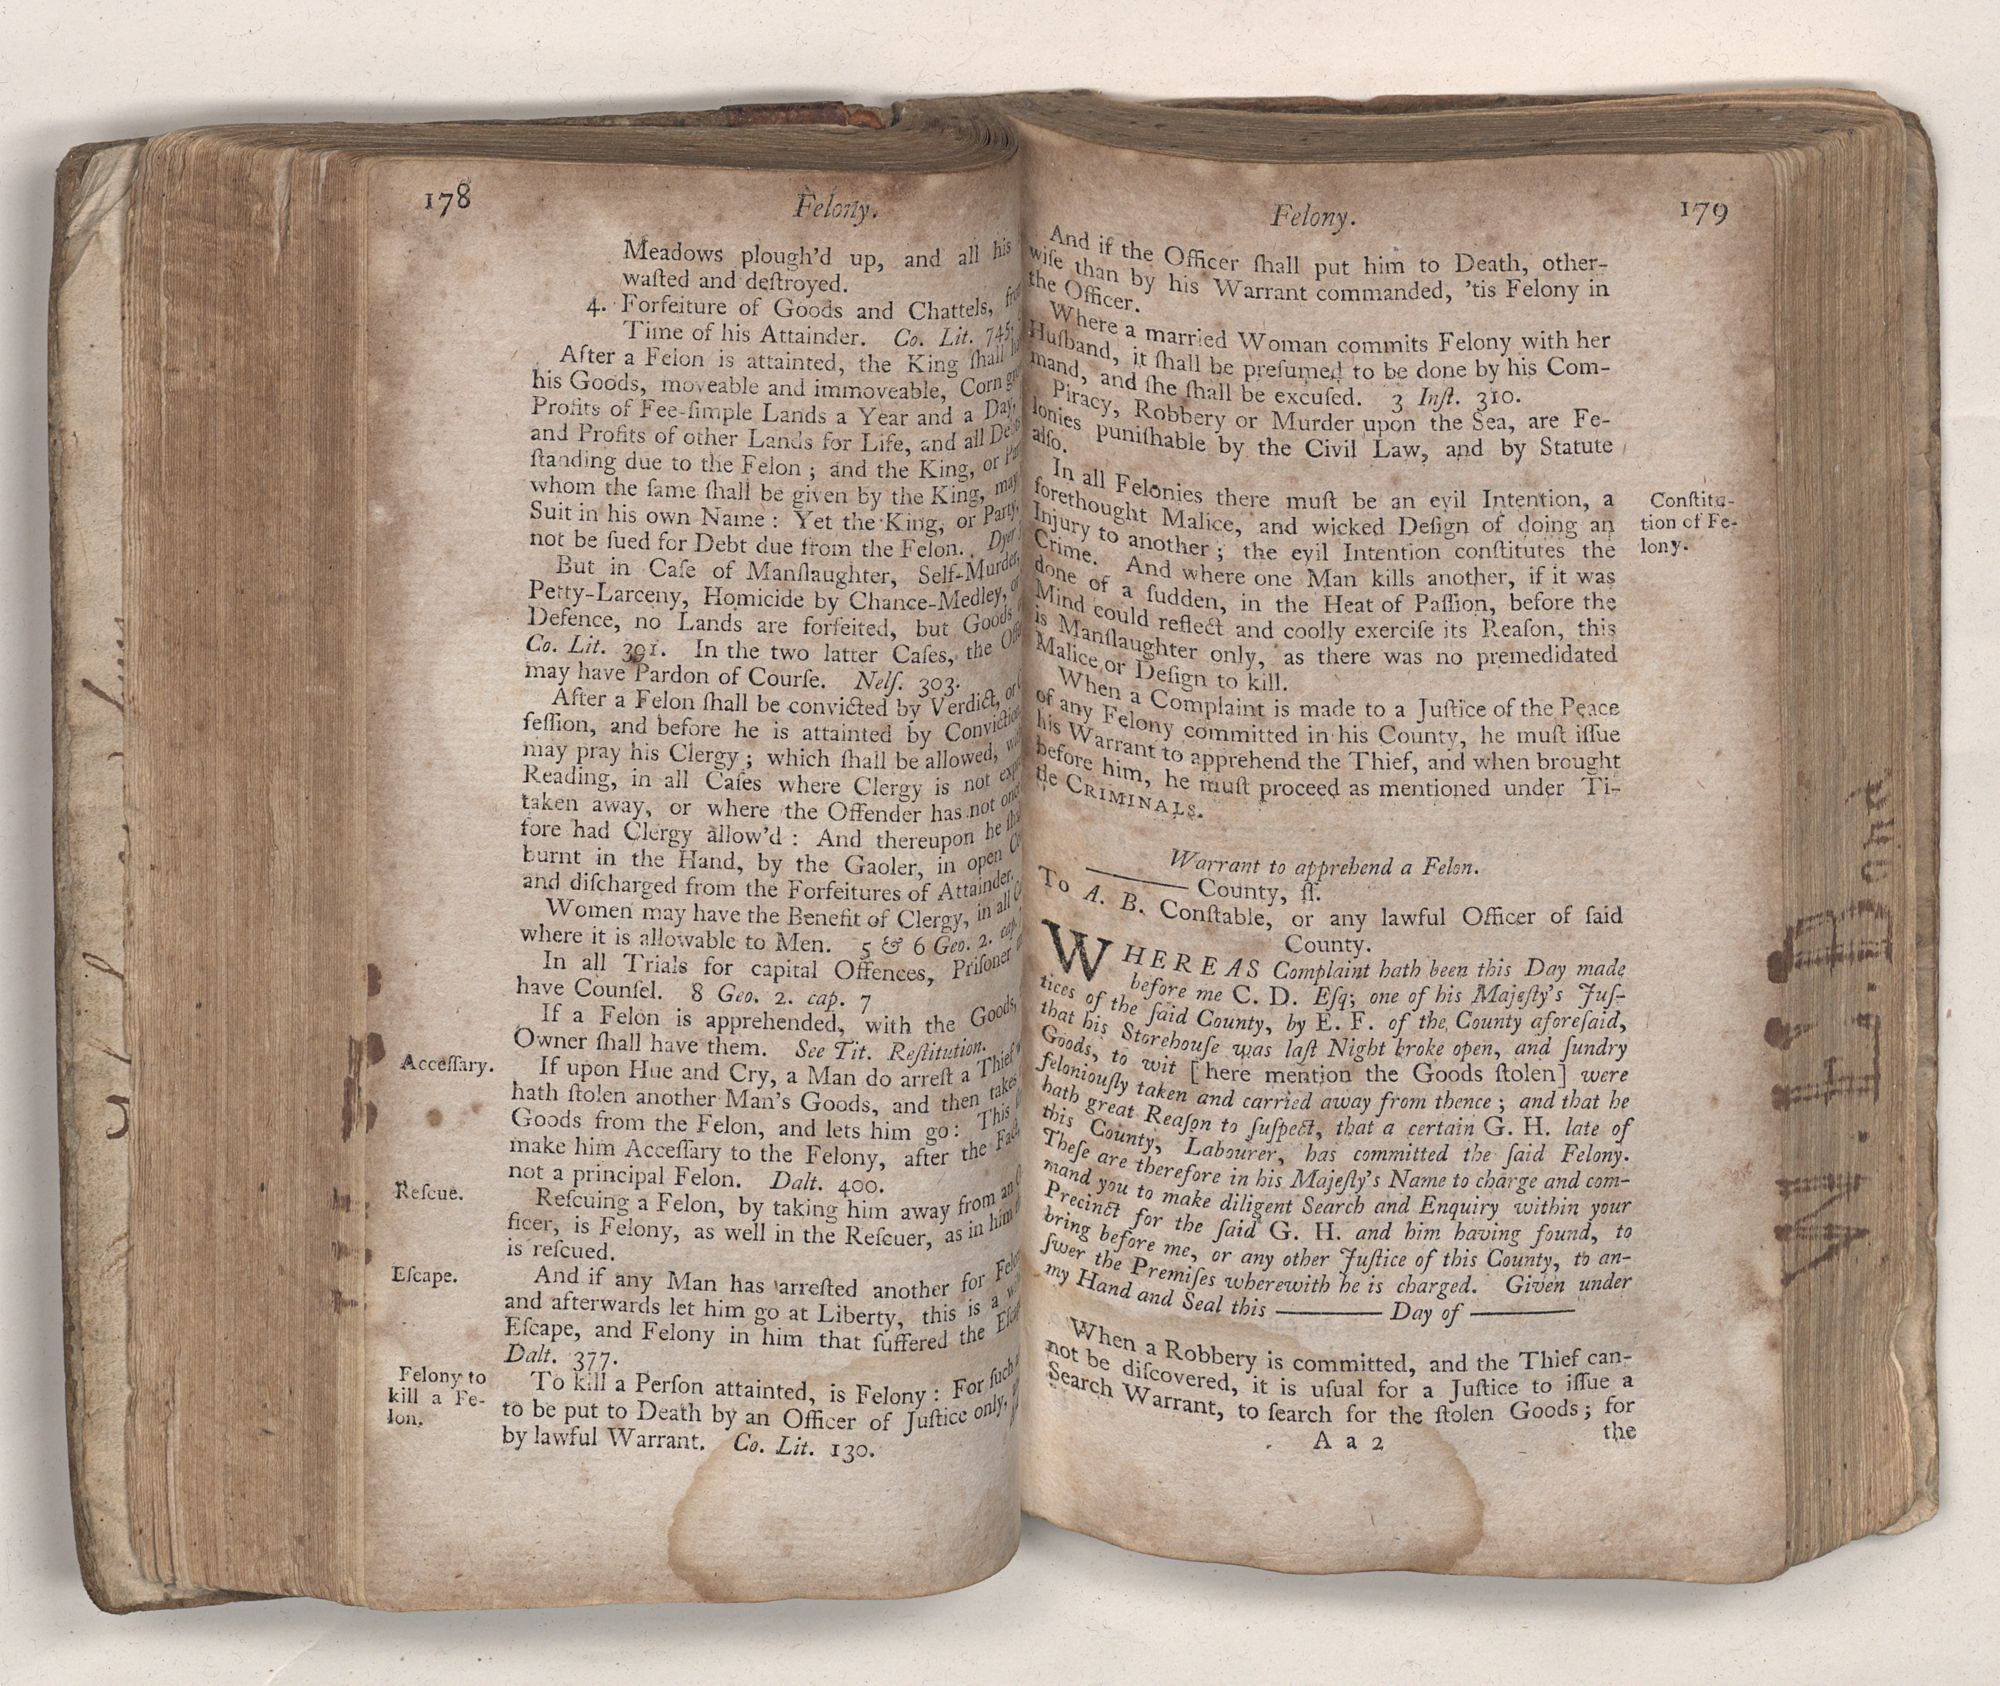 178
Felony.
Meadows plough'd up, and all his
waſted and deſtroyed.
4. Forfeiture of Goods and Chattels,
Time of his Attainder. Co. Lit. 745.
After a Felon is attainted, the King ſhall
his Goods, moveable and immoveable, Corn
Profits of Fee-ſimple Lands a Year and a Day,
and Profits of other Lands for Life, and all
ſtanding due to the Felon; and the King, or
whom the ſame ſhall be given by the King, may
Suit in his own Name: Yet the King, or Party,
not be ſued for Debt due from the Felon. Dyer
But in Caſe of Manſlaughter, Self-Murder,
Petty-Larceny, Homicide by Chance-Medley, or
Defence, no Lands are forfeited, but Goods
Co. Lit. 391. In the two latter Caſes, the
may have Pardon of Courſe. Nelſ. 303.
After a Felon ſhall be convicted by Verdict, or
feſſion, and before he is attainted by Conviction
may pray his Clergy; which ſhall be allowed,
Reading, in all Caſes where Clergy is not
taken away, or where the Offender has not
fore had Clergy allow'd: And thereupon he
burnt in the Hand, by the Gaoler, in open
and diſcharged from the Forfeitures of Attainder.
Women may have the Benefit of Clergy, in all
where it is allowable to Men. 5 & 6 Geo. 2. cap.
In all Trials for capital Offences, Priſoner
have Counſel. 8 Geo. 2. cap. 7
If a Felon is apprehended, with the Goods,
Owner ſhall have them. See Tit. Reſtitution.
Acceſſary.
If upon Hue and Cry, a Man do arreſt a Thief
hath ſtolen another Man's Goods, and then takes
Goods from the Felon, and lets him go: This
make him Acceſſary to the Felony, after the Fact
not a principal Felon. Dalt. 400.
Reſcue.
Reſcuing a Felon, by taking him away from an
ficer, is Felony, as well in the Reſcuer, as in him
is reſcued.
Eſcape.
And if any Man has arreſted another for
and afterwards let him go at Liberty, this is a
Eſcape, and Felony in him that ſuffered the
Dalt. 377.
Felony to
kill a Fe-
lon.
To kill a Perſon attainted, is Felony: For ſuch
to be put to Death by an Officer of Juſtice only,
by lawful Warrant. Co. Lit. 130.
Felony.
179
And if the Officer ſhall put him to Death, other-
wiſe than by his Warrant commanded, 'tis Felony in
the Officer.
Where a married Woman commits Felony with her
Huſband, it ſhall be preſumed to be done by his Com-
mand, and ſhe ſhall be excuſed. 3 Inſt. 310.
Piracy, Robbery or Murder upon the Sea, are Fe-
lonies puniſhable by the Civil Law, and by Statute
alſo.
Conſtitu-
tion of Fe-
lony.
In all Felonies there muſt be an evil Intention, a
forethought Malice, and wicked Deſign of doing an
Injury to another; the evil Intention conſtitutes the
Crime. And where one Man kills another, if it was
done of a ſudden, in the Heat of Paſſion, before the
Mind could reflect and coolly exerciſe its Reaſon, this
is Manſlaughter only, as there was no premedidated
Malice or Deſign to kill.
When a Complaint is made to a Juſtice of the Peace
of any Felony committed in his County, he muſt iſſue
his Warrant to apprehend the Thief, and when brought
before him, he muſt proceed as mentioned under Ti-
tle CRIMINALS.
Warrant to apprehend a Felon.
County, ſſ.
To A. B. Conſtable, or any lawful Officer of ſaid
County.
WHEREAS Complaint hath been this Day made
before me C. D. Eſq; one of his Majeſty's Juſ-
tices of the ſaid County, by E. F. of the County aforeſaid,
that his Storehouſe was laſt Night broke open, and ſundry
Goods, to wit [here mention the Goods ſtolen] were
feloniouſly taken and carried away from thence; and that he
hath great Reaſon to ſuſpect, that a certain G. H. late of
this County, Labourer, has committed the ſaid Felony.
Theſe are therefore in his Majeſty's Name to charge and com-
mand you to make diligent Search and Enquiry within your
Precinct for the ſaid G. H. and him having found, to
bring before me, or any other Juſtice of this County, to an-
ſwer the Premiſes wherewith he is charged. Given under
my Hand and Seal this ——— Day of ———
When a Robbery is committed, and the Thief can-
not be diſcovered, it is uſual for a Juſtice to iſſue a
Search Warrant, to ſearch for the ſtolen Goods; for
A a 2
the